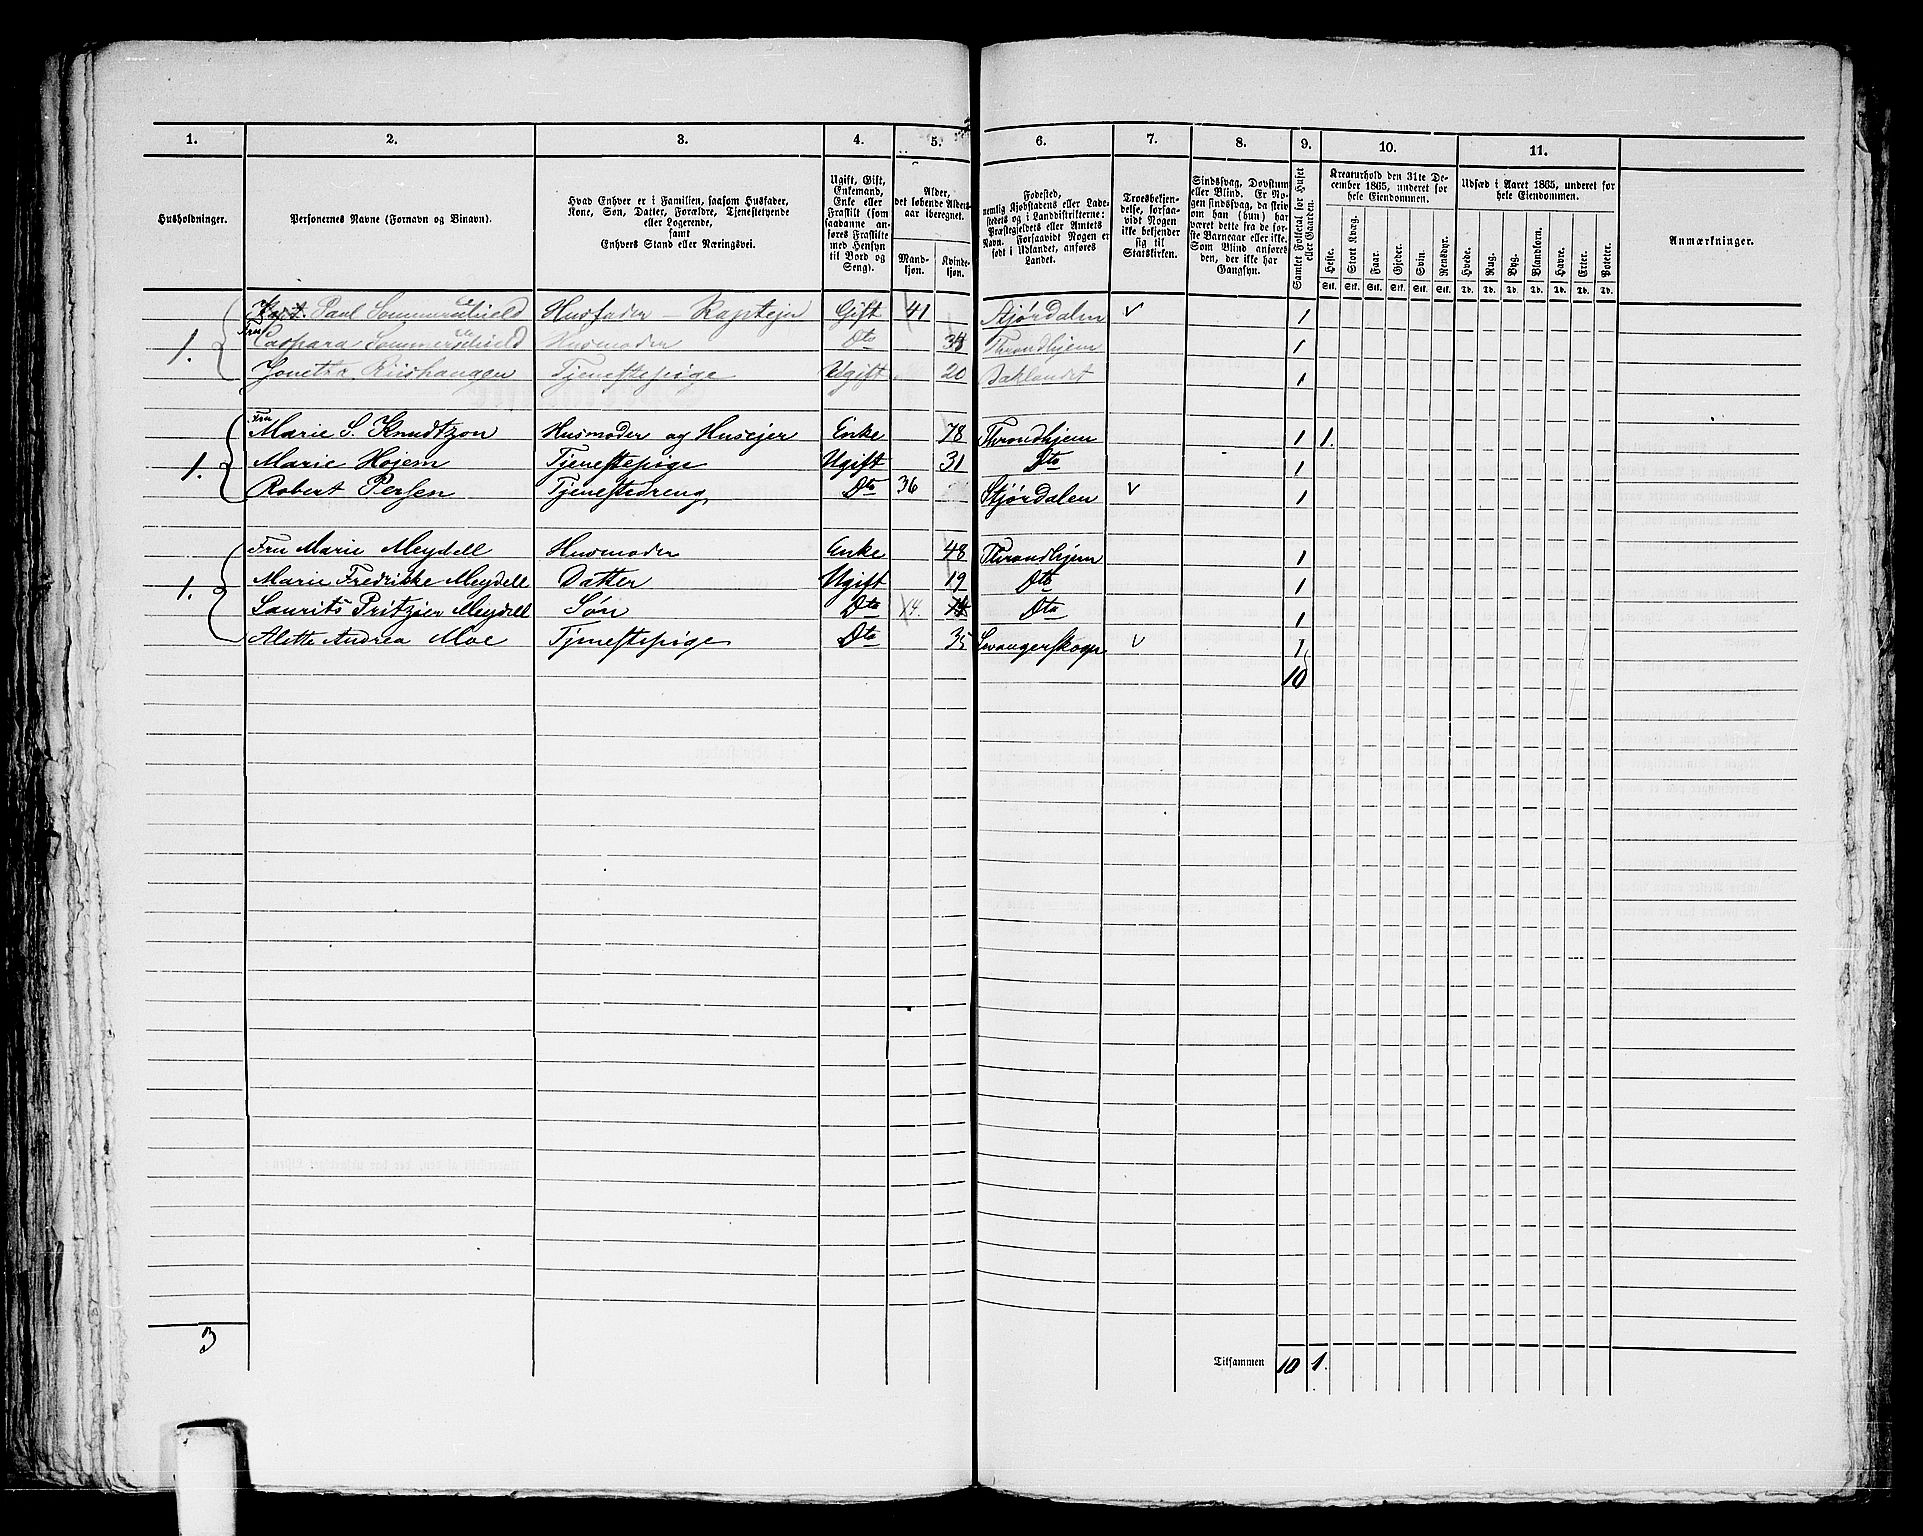 1. 2. 3. 4. 5. 6. 7. 8. 9. 10. 11.
Husholdninger.
Personernes Navne (Fornavn og Binavn).
Hvad Enhver er i Familien, saasom Husfader,
Kone, Søn, Datter, Forældre, Tjenestetyende
eller Logerende,
samt
Enhvers Stand eller Næringsvei.
Ugift, Gift,
Enkemand,
Enke eller
Fraskilt (som
saadanne an-
føres Fraskilte
med Hensyn
til Bord og
Seng).
Alder,
det løbende Alders-
aar iberegnet.
Mand-
kjøn.
Kvinde-
kjøn.
Fødested,
nemlig Kjøbstadens eller Lade-
stedets og i Landdistrikterne:
Præstegjeldets eller Amtets
Navn. Forsaavidt Nogen er
født i Udlandet, anføres
Landet.
Troesbekjen-
delse, forsaa-
vidt Nogen
ikke bekjender
sig til
Statskirken.
Sindssvag, Døvstum
eller Blind. Er No-
gen sindssvag, da skriv
om han (hun) har
været dette fra de før-
ste Barneaar eller ikke.
Som Blind anføres
den, der ikke har
Gangsyn.
Samlet Folketal for Huset
eller Gaarden.
Kreaturhold den 31te De-
cember 1865, underet for
hele Eiendommen.
Heste. Stort Kvæg. Faar. Gjeder. Svin. Rensdyr.
Stk. Stk. Stk. Stk. Stk. Stk.
Udsæd i Aaret 1865, underet for
hele Eiendommen.
Hvede. Rug. Byg. Blandkorn. Havre. Erter. Poteter.
Td. Td. Td. Td. Td. Td. Td.
Anmærkninger.
Kapt. Paul Sommerschield Husfader – Kaptejn Gift 41 Stjørdalen v 1
1. Fru Caspara Sommerschield Husmoder Dto 38 Throndhjem 1
Jonetta Riishaugen Tjenestepige Ugift 20 Baklandet 1
Fru Marie S. Knudtzon Husmoder og Husejer Enke 78 Throndhjem 1 1.
1. Marie Hojem Tjenestepige Ugift 31 Dto 1
Robert Persen Tjenestedreng Dto 36 Stjørdalen v 1
Fru Marie Meydell Husmoder Enke 48 Throndhjem 1
1. Marie Fredrikke Meydell Datter Ugift 19 Dto 1
Laurits Pritzier Meydell Søn Dto 14. 14 Dto 1
Alette Andrea Moe Tjenestepige Dto 35 v 1
10
3
Tilsammen 10 1.